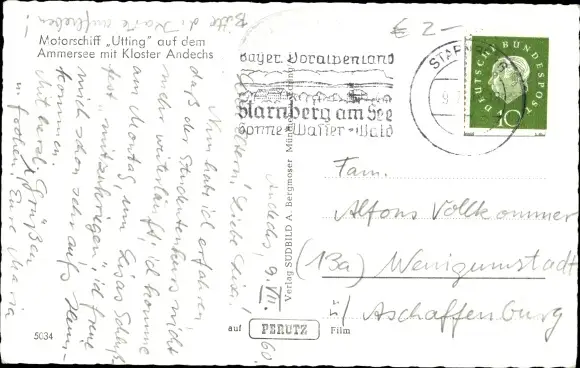 Bitte d. Karte aufheben!
Motorschiff „Utting" auf dem
Ammersee mit Kloster Andechs
€ 2-
Bayer. Voralpenland
Starnberg am See
Sonne-Wasser-Wald
STARNBERG
DEUTSCHE BUNDESPOST
10
Andechs, 9. VII. 60.
Liebe Eltern! Liebe
Nun hab' ich erfahren
daß der Studentenkurs nicht
mehr weiterläuft, ich komme
am Montag, um Lisas Schluß
fest mitzukriegen, ich freue
mich schon sehr aufs Heim-
kommen.
Mit herzl. Grüßen
Eure Maria
Verlag SÜDBILD A. Bergmoser München
Fam.
Alfons Vollkommer
(13a) Wenigumstadt
ü/ Aschaffenburg
5034
auf PERUTZ Film